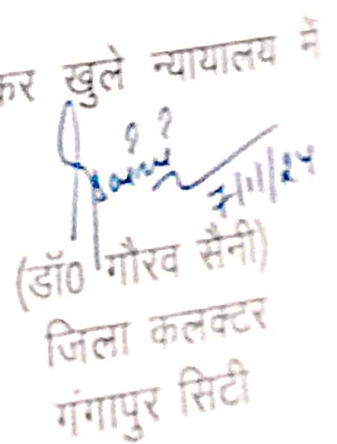 कर खुले न्यायालय में
7/11/24
(डॉ0 गौरव सैनी)
जिला कलक्टर
गंगापुर सिटी